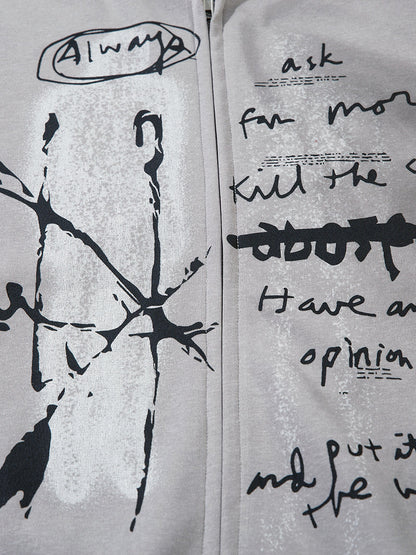 Always
ask
for more
Kill the
Have an
opinion
and put it
the